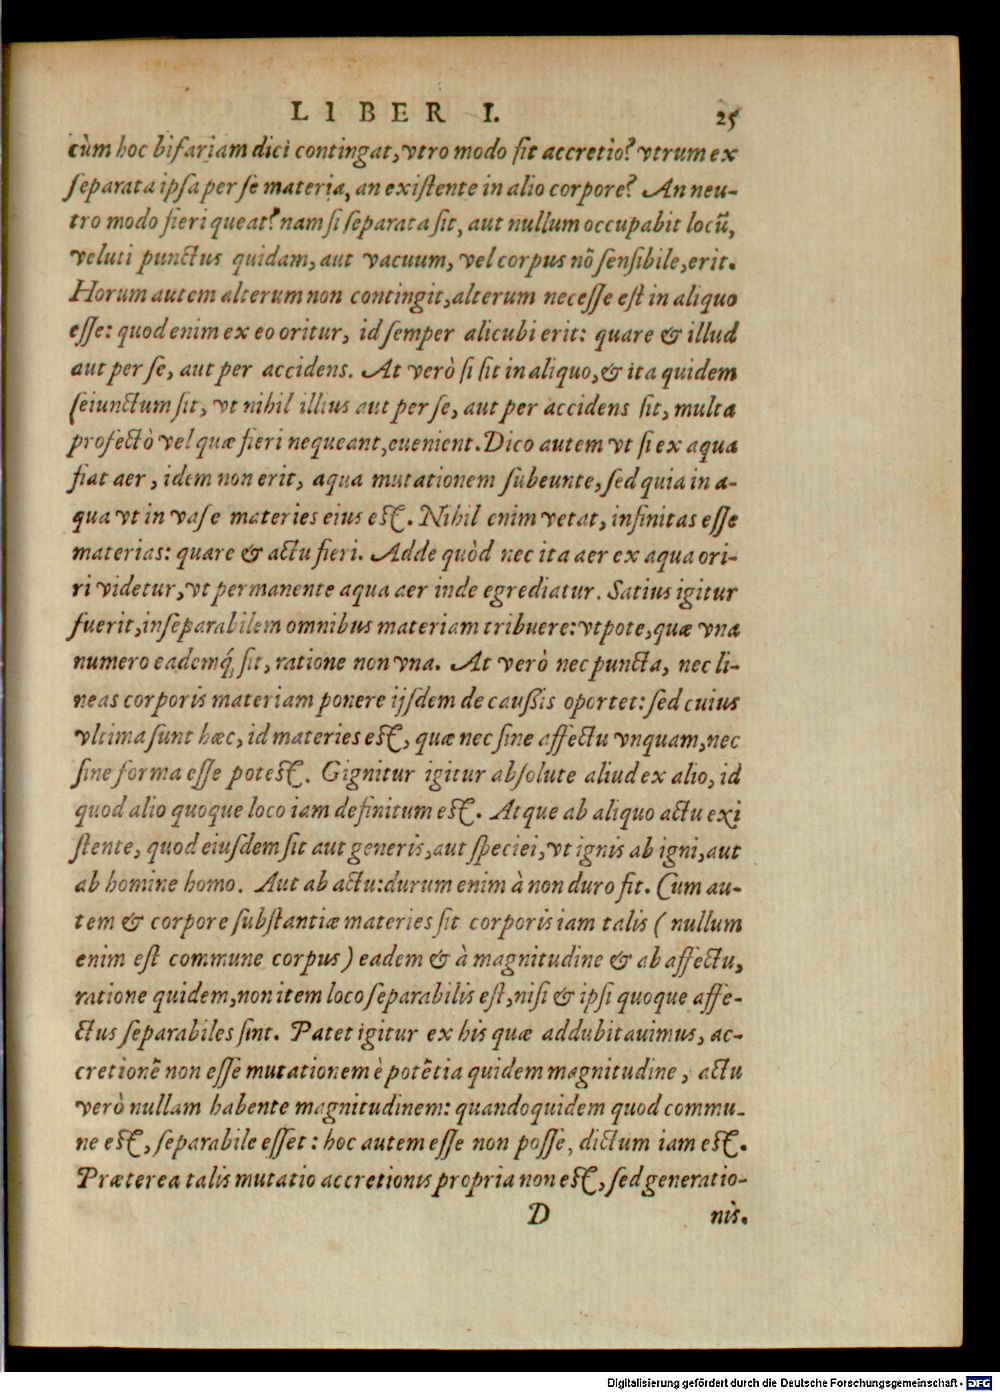 LIBER I. 25
cùm hoc bifariam dici contingat, vtro modo fit accretio? vtrum ex
ſeparata ipſa per ſe materia, an exiſtente in alio corpore? An neu-
tro modo fieri queat? nam ſi ſeparata ſit, aut nullum occupabit locũ,
veluti punctus quidam, aut vacuum, vel corpus nõ ſenſibile, erit.
Horum autem alterum non contingit, alterum neceſſe eſt in aliquo
eſſe: quod enim ex eo oritur, id ſemper alicubi erit: quare & illud
aut per ſe, aut per accidens. At verò ſi ſit in aliquo, & ita quidem
ſeiunctum ſit, vt nihil illius aut per ſe, aut per accidens ſit, multa
profectò vel quæ fieri nequeant, euenient. Dico autem vt ſi ex aqua
fiat aer, idem non erit, aqua mutationem ſubeunte, ſed quia in a-
qua vt in vaſe materies eius eſt. Nihil enim vetat, infinitas eſſe
materias: quare & actu fieri. Adde quòd nec ita aer ex aqua ori-
ri videtur, vt permanente aqua aer inde egrediatur. Satius igitur
fuerit, inſeparabilem omnibus materiam tribuere: vtpote, quæ vna
numero eademq́; ſit, ratione non vna. At verò nec puncta, nec li-
neas corporis materiam ponere ijſdem de cauſſis oportet: ſed cuius
vltima ſunt hæc, id materies eſt, quæ nec ſine affectu vnquam, nec
ſine forma eſſe poteſt. Gignitur igitur abſolute aliud ex alio, id
quod alio quoque loco iam definitum eſt. Atque ab aliquo actu exi
ſtente, quod eiuſdem ſit aut generis, aut ſpeciei, vt ignis ab igni, aut
ab homine homo. Aut ab actu: durum enim à non duro fit. Cum au-
tem & corpore ſubſtantiæ materies ſit corporis iam talis (nullum
enim eſt commune corpus) eadem & à magnitudine & ab affectu,
ratione quidem, non item loco ſeparabilis eſt, niſi & ipſi quoque affe-
ctus ſeparabiles ſint. Patet igitur ex his quæ addubitauimus, ac-
cretionẽ non eſſe mutationem è potẽtia quidem magnitudine, actu
verò nullam habente magnitudinem: quandoquidem quod commu-
ne eſt, ſeparabile eſſet: hoc autem eſſe non poſſe, dictum iam eſt.
Præterea talis mutatio accretionis propria non eſt, ſed generatio-
D nis.
Digitalisierung gefördert durch die Deutsche Forschungsgemeinschaft - DFG